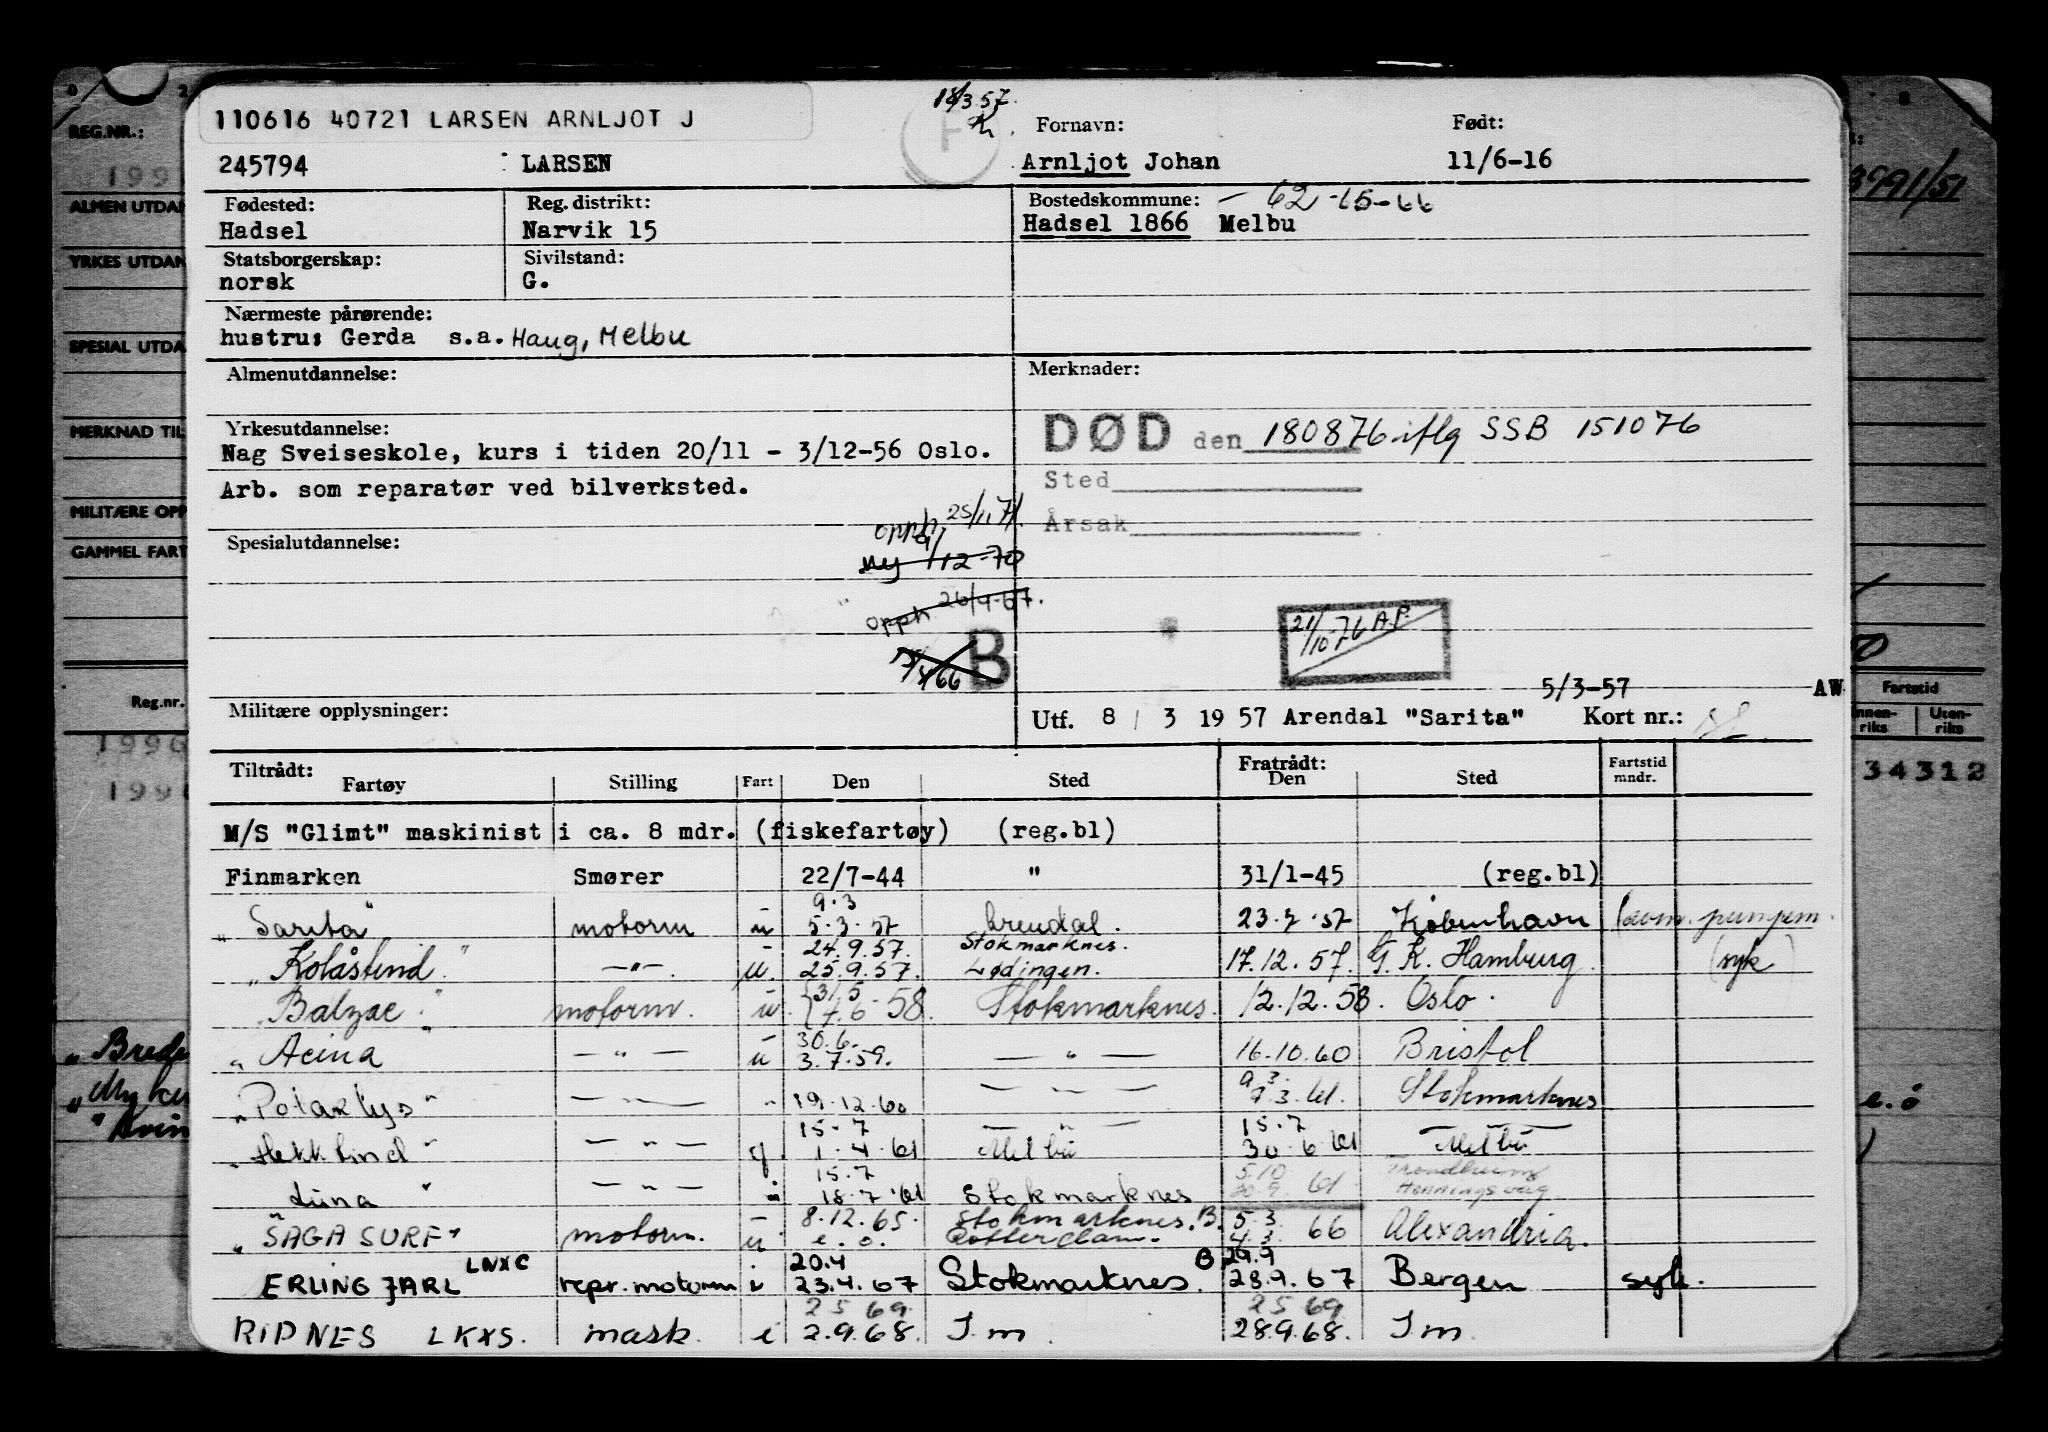 110616 40721 LARSEN ARNLJOT J
18/3 57.
F
Fornavn: Født:
245794 LARSEN Arnljot Johan 11/6-16
Fødested: Reg. distrikt: Bostedskommune: - 62 -65-66
Hadsel Narvik 15 Hadsel 1866 Melbu
Statsborgerskap: Sivilstand:
norsk G.
Nærmeste pårørende:
hustru: Gerda s.a. Haug, Melbu
Almenutdannelse: Merknader:
Yrkesutdannelse: DØD den 180876 iflg SSB 151076
Nag Sveiseskole, kurs i tiden 20/11 - 3/12-56 Oslo.
Sted
Arb. som reparatør ved bilverksted.
Årsak
opph. 25/1.71
Spesialutdannelse:
ny 1/12-70
opph 26/9-67.
21/10-76 A.P.
15/4/66 B
5/3-57 AW
Militære opplysninger: Utf. 8 / 3 19 57 Arendal "Sarita" Kort nr.:
Tiltrådt: Fratrådt: Fartstid mndr.
Fartøy Stilling Fart Den Sted Den Sted
M/S "Glimt" maskinist i ca. 8 mdr. (fiskefartøy) (reg.bl)
Finmarken Smører 22/7-44 " 31/1-45 (reg.bl)
9.3
"Sarita" motorm u 5.3.57 Arendal. 23.7.57 København
24.9.57. Stokmarknes.
"Kolåstind" -"-. u. 25.9.57. Lødingen. 17.12.57. G.K. Hamburg (syk)
31/5
"Balzac" motorm. u 7.6.58. Stokmarknes. 12.12.58. Oslo.
30.6.
"Acina" -"- u 3.7.59. -"- 16.10.60 Bristol
9.3.
"Polarlys" -"- " 19.12.60 -"- 9.3.61. Stokmarknes
15.7 -"- 15.7
"Hekktind" -"- g 1.4.61 Melbu 30.6.61 Melbu
15.7 5.10 Trondheim
"Luna" -"- i 18.7.61 Stokmarknes 30.9. 61 Honningsvåg
8.12.65. Stokmarknes. B. 5.3.
"SAGA SURF" motorm. u e.o. Rotterdam. 4.3. 66 Alexandria.
LNXC 20.4 B 29.9
ERLING JARL repr. motorm i 23.4.67 Stokmarknes. 28.9.67 Bergen syk.
25 69 25 69
RIDNES LKXS. mask. i 2.9.68. I m. 28.9.68. I m.
REG.NR.:
ALMEN UTDAN
YRKES UTDAN
SPESIAL UTDA
MERKNAD TIL
MILITÆRE OPP
GAMMEL FART
Reg.nr.
"Brede
3991/51
Fartstid
Innen-riks Uten-riks
34312
e.o